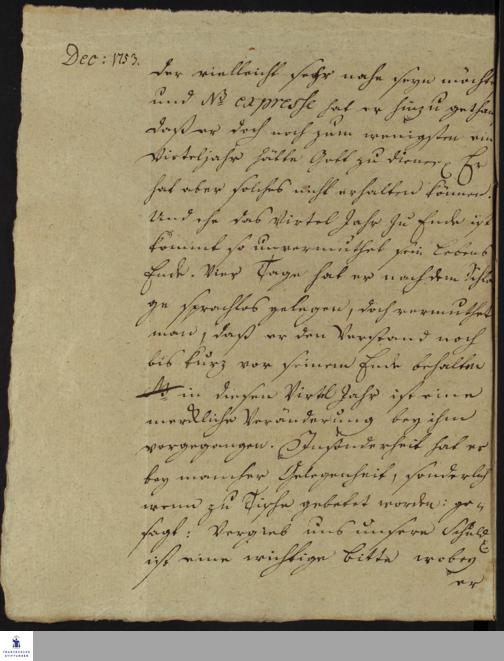 Dec: 1753.
der vielleicht sehr nahe seyn möchte
und NB expresse hat er hinzu gethan
daß er doch noch zum wenigsten ein
Virteljahr hätte Gott zu dienen. Er
hat aber solches nicht erhalten können.
Und ehe das Virtel Jahr zu Ende ist
kommt so unvermuthet sein Lebens
Ende. Vier Tage hat er nach dem Schla
ge sprachlos gelegen, doch vermuthet
man, daß er den Verstand noch
bis kurz vor seinem Ende behalten
in diesen Virtl Jahr ist eine
merckliche Veränderung bey ihm
vorgegangen. Insonderheit hat er
bey mancher Gelegenheit, sonderlich
wenn zu Tische gebetet worden: ge-
sagt: Vergieb uns unsere Schuld
ist eine wichtige bitte wobey
er
FRANCKESCHE
STIFTUNGEN